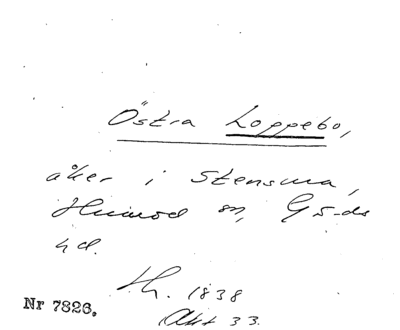 Östra Loppebo,
åker i Stensma,
Himmod sn, Gö-ds
hd.
Lh. 1838
Akt 33.
Nr 7826.